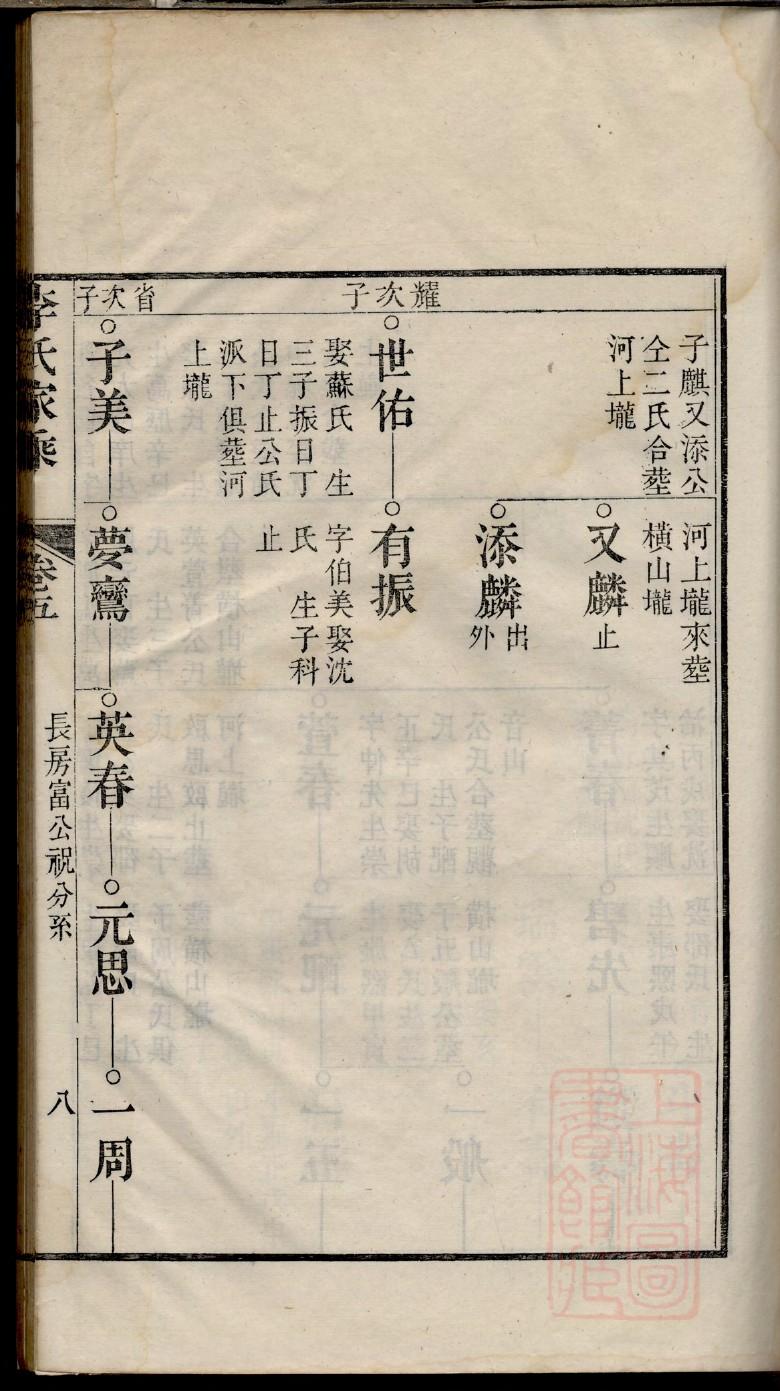 子麒又添公
仝二氏合塟
河上壠
河上壠來塟
橫山壠
又麟
止
添麟
出
外
耀次子
世佑
娶蘇氏　生
三子振日丁
日丁止公氏
派下俱塟河
上壠
有振
字伯美娶沈
氏　生子科
止
省次子
子美
夢鸞
英春
元思
一周
李氏家乘
卷五
長房富公祝分系
八
上海圖
書館藏